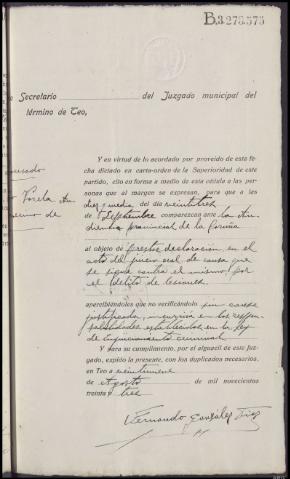 B.3273573
Secretario del Juzgado municipal del
término de Teo,
Y en virtud de lo acordado por proveído de esta fe
cha dictado en carta-orden de la Superioridad de este
partido, cito en forma a medio de esta cédula a las per-
sonas que al margen se expresan, para que a las
Varela
diez y media, del día veintitres
de
de Septiembre comparezcan ante la Au-
diencia provincial de la Coruña
al objeto de prestar declaración en el
acto del juicio oral de causa que
se sigue contra el mismo por
el delito de lesiones
apercibiéndoles que no verificándolo sin causa
justificada, incurrirá en las respon-
sabilidades establecidas en la ley
de enjuiciamiento criminal
Y para su cumplimiento, por el alguacil de este Juz-
gado, expido la presente, con los duplicados necesarios,
en Teo a veintinueve
de Agosto de mil novecientos
treinta y tres
Fernando González